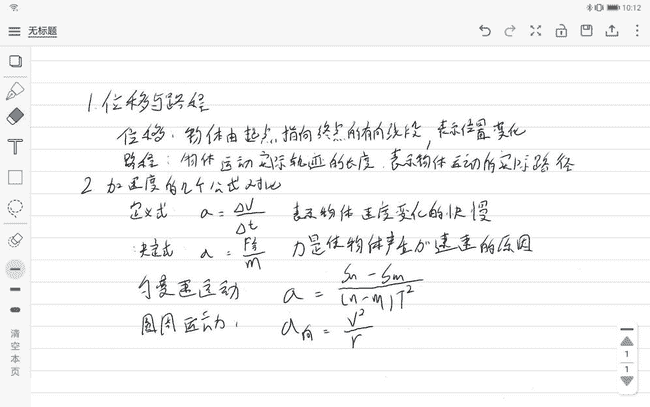 10:12
无标题
1.位移与路程
位移:物体由起点指向终点的有向线段,表示位置变化
路程:物体运动实际轨迹的长度.表示物体运动的实际路径
2 加速度的几个公式对比
定义式 a = ΔV/Δt 表示物体速度变化的快慢
决定式 a = F合/m 力是使物体产生加速度的原因
匀变速运动 a = (Sn - Sm)/(n-m)T²
圆周运动. a向 = V²/r
清空本页
1
1